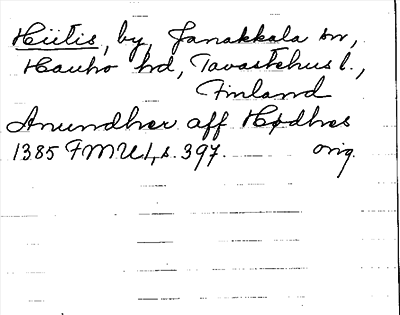 Hiitis, by, Janakkala sn,
Hauho hd, Tavastehus l.,
Finland
Anundher aff Hødhes
1385 FMU I, s. 397. orig.